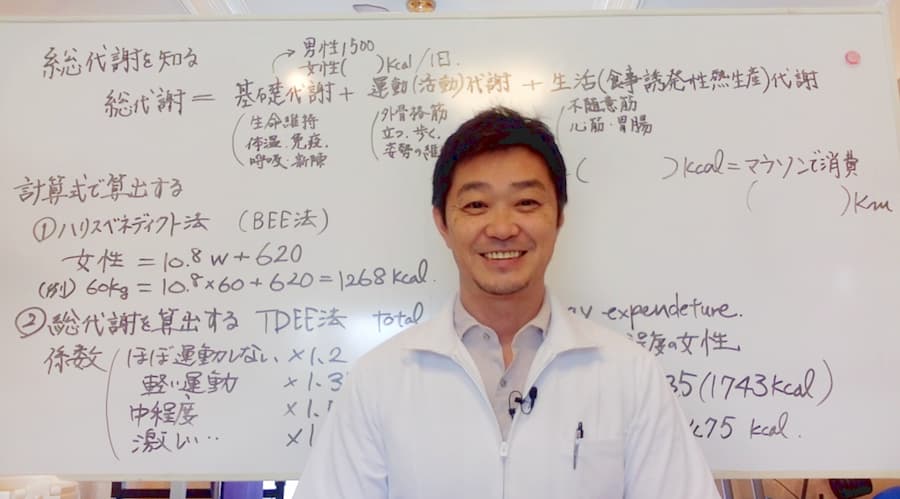 総代謝を知る
男性1500
女性(　　)kcal/1日.
総代謝 = 基礎代謝 + 運動(活動)代謝 + 生活(食事誘発性熱生産)代謝
生命維持
体温.免疫.
呼吸.新陳
外骨格筋
立つ.歩く.
姿勢の維
不随意筋
心筋・胃腸
(　　　)kcal=マラソンで消費
(　　　)Km
計算式で算出する
①ハリスベネディクト法 (BEE法)
女性 = 10.8w+620
(例) 60kg = 10.8×60+620=1268kcal.
②総代謝を算出する TDEE法 total expendeture.
係数
ほぼ運動しない ×1.2
軽い運動 ×1.3
中程度 ×1.
激しい‥ ×1
程度の女性
35(1743kcal)
75 kcal.